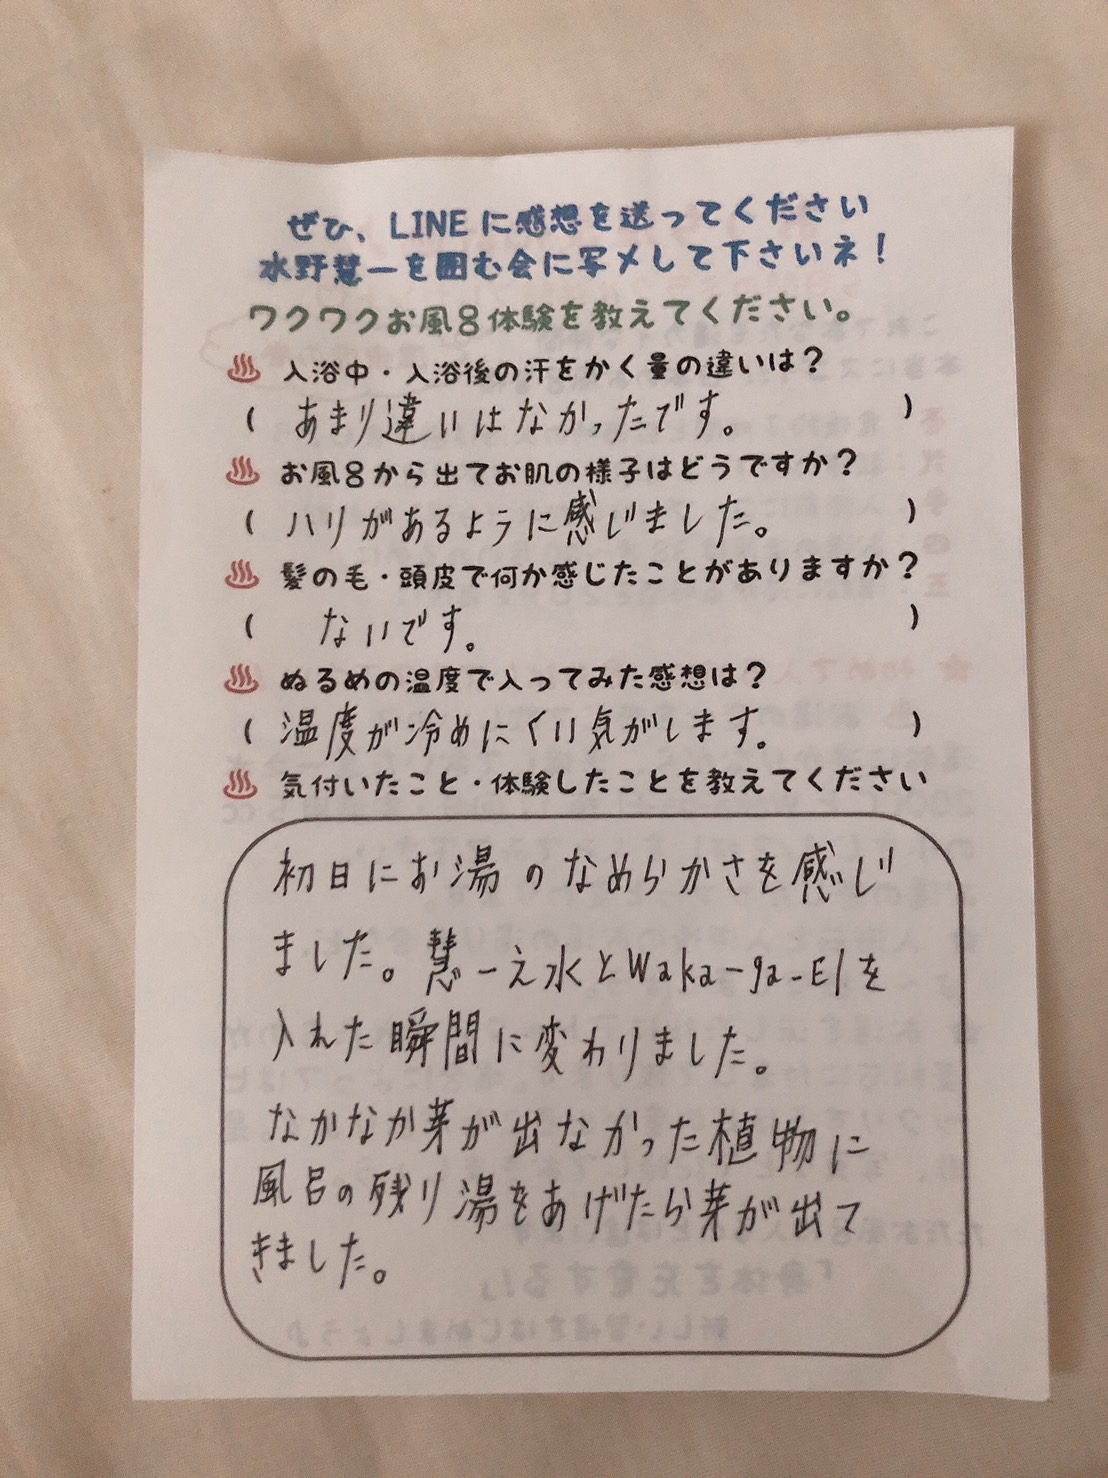 ぜひ、LINEに感想を送ってください
水野慧一を囲む会に写メして下さいネ！
ワクワクお風呂体験を教えてください。
♨ 入浴中・入浴後の汗をかく量の違いは？
( あまり違いはなかったです。 )
♨ お風呂から出てお肌の様子はどうですか？
( ハリがあるように感じました。 )
♨ 髪の毛・頭皮で何か感じたことがありますか？
( ないです。 )
♨ ぬるめの温度で入ってみた感想は？
( 温度が冷めにくい気がします。 )
♨ 気付いたこと・体験したことを教えてください
初日にお湯のなめらかさを感じ
ました。慧一え水とWaka-ga-Elを
入れた瞬間に変わりました。
なかなか芽が出なかった植物に
風呂の残り湯をあげたら芽が出て
きました。